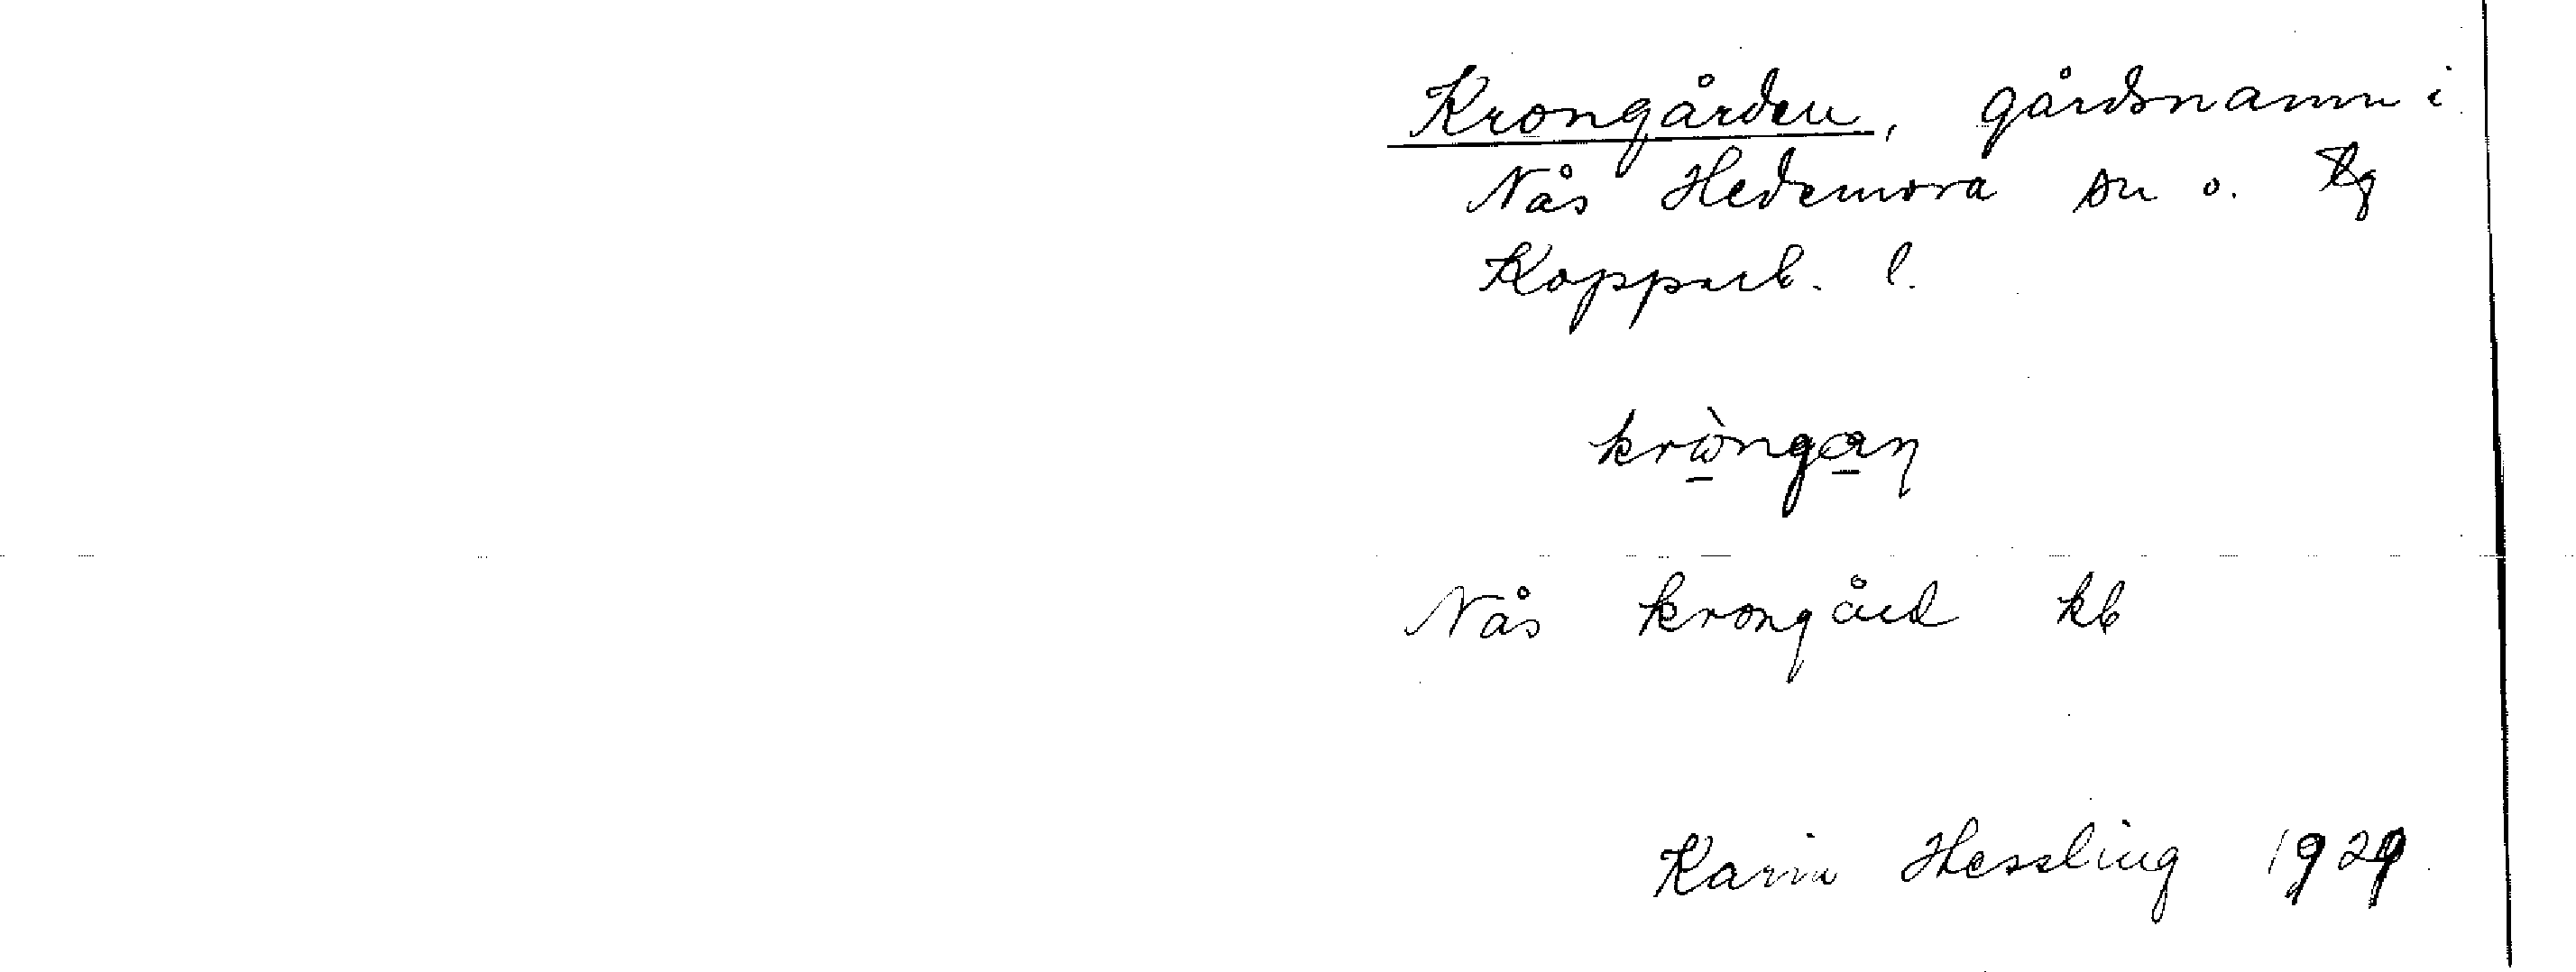 Krongården, gårdsnamn i
Nås Hedemora sn o. tg
Kopparb. l.
krὼngaɳ
Nås krongård kb
Karin Hessling 1929